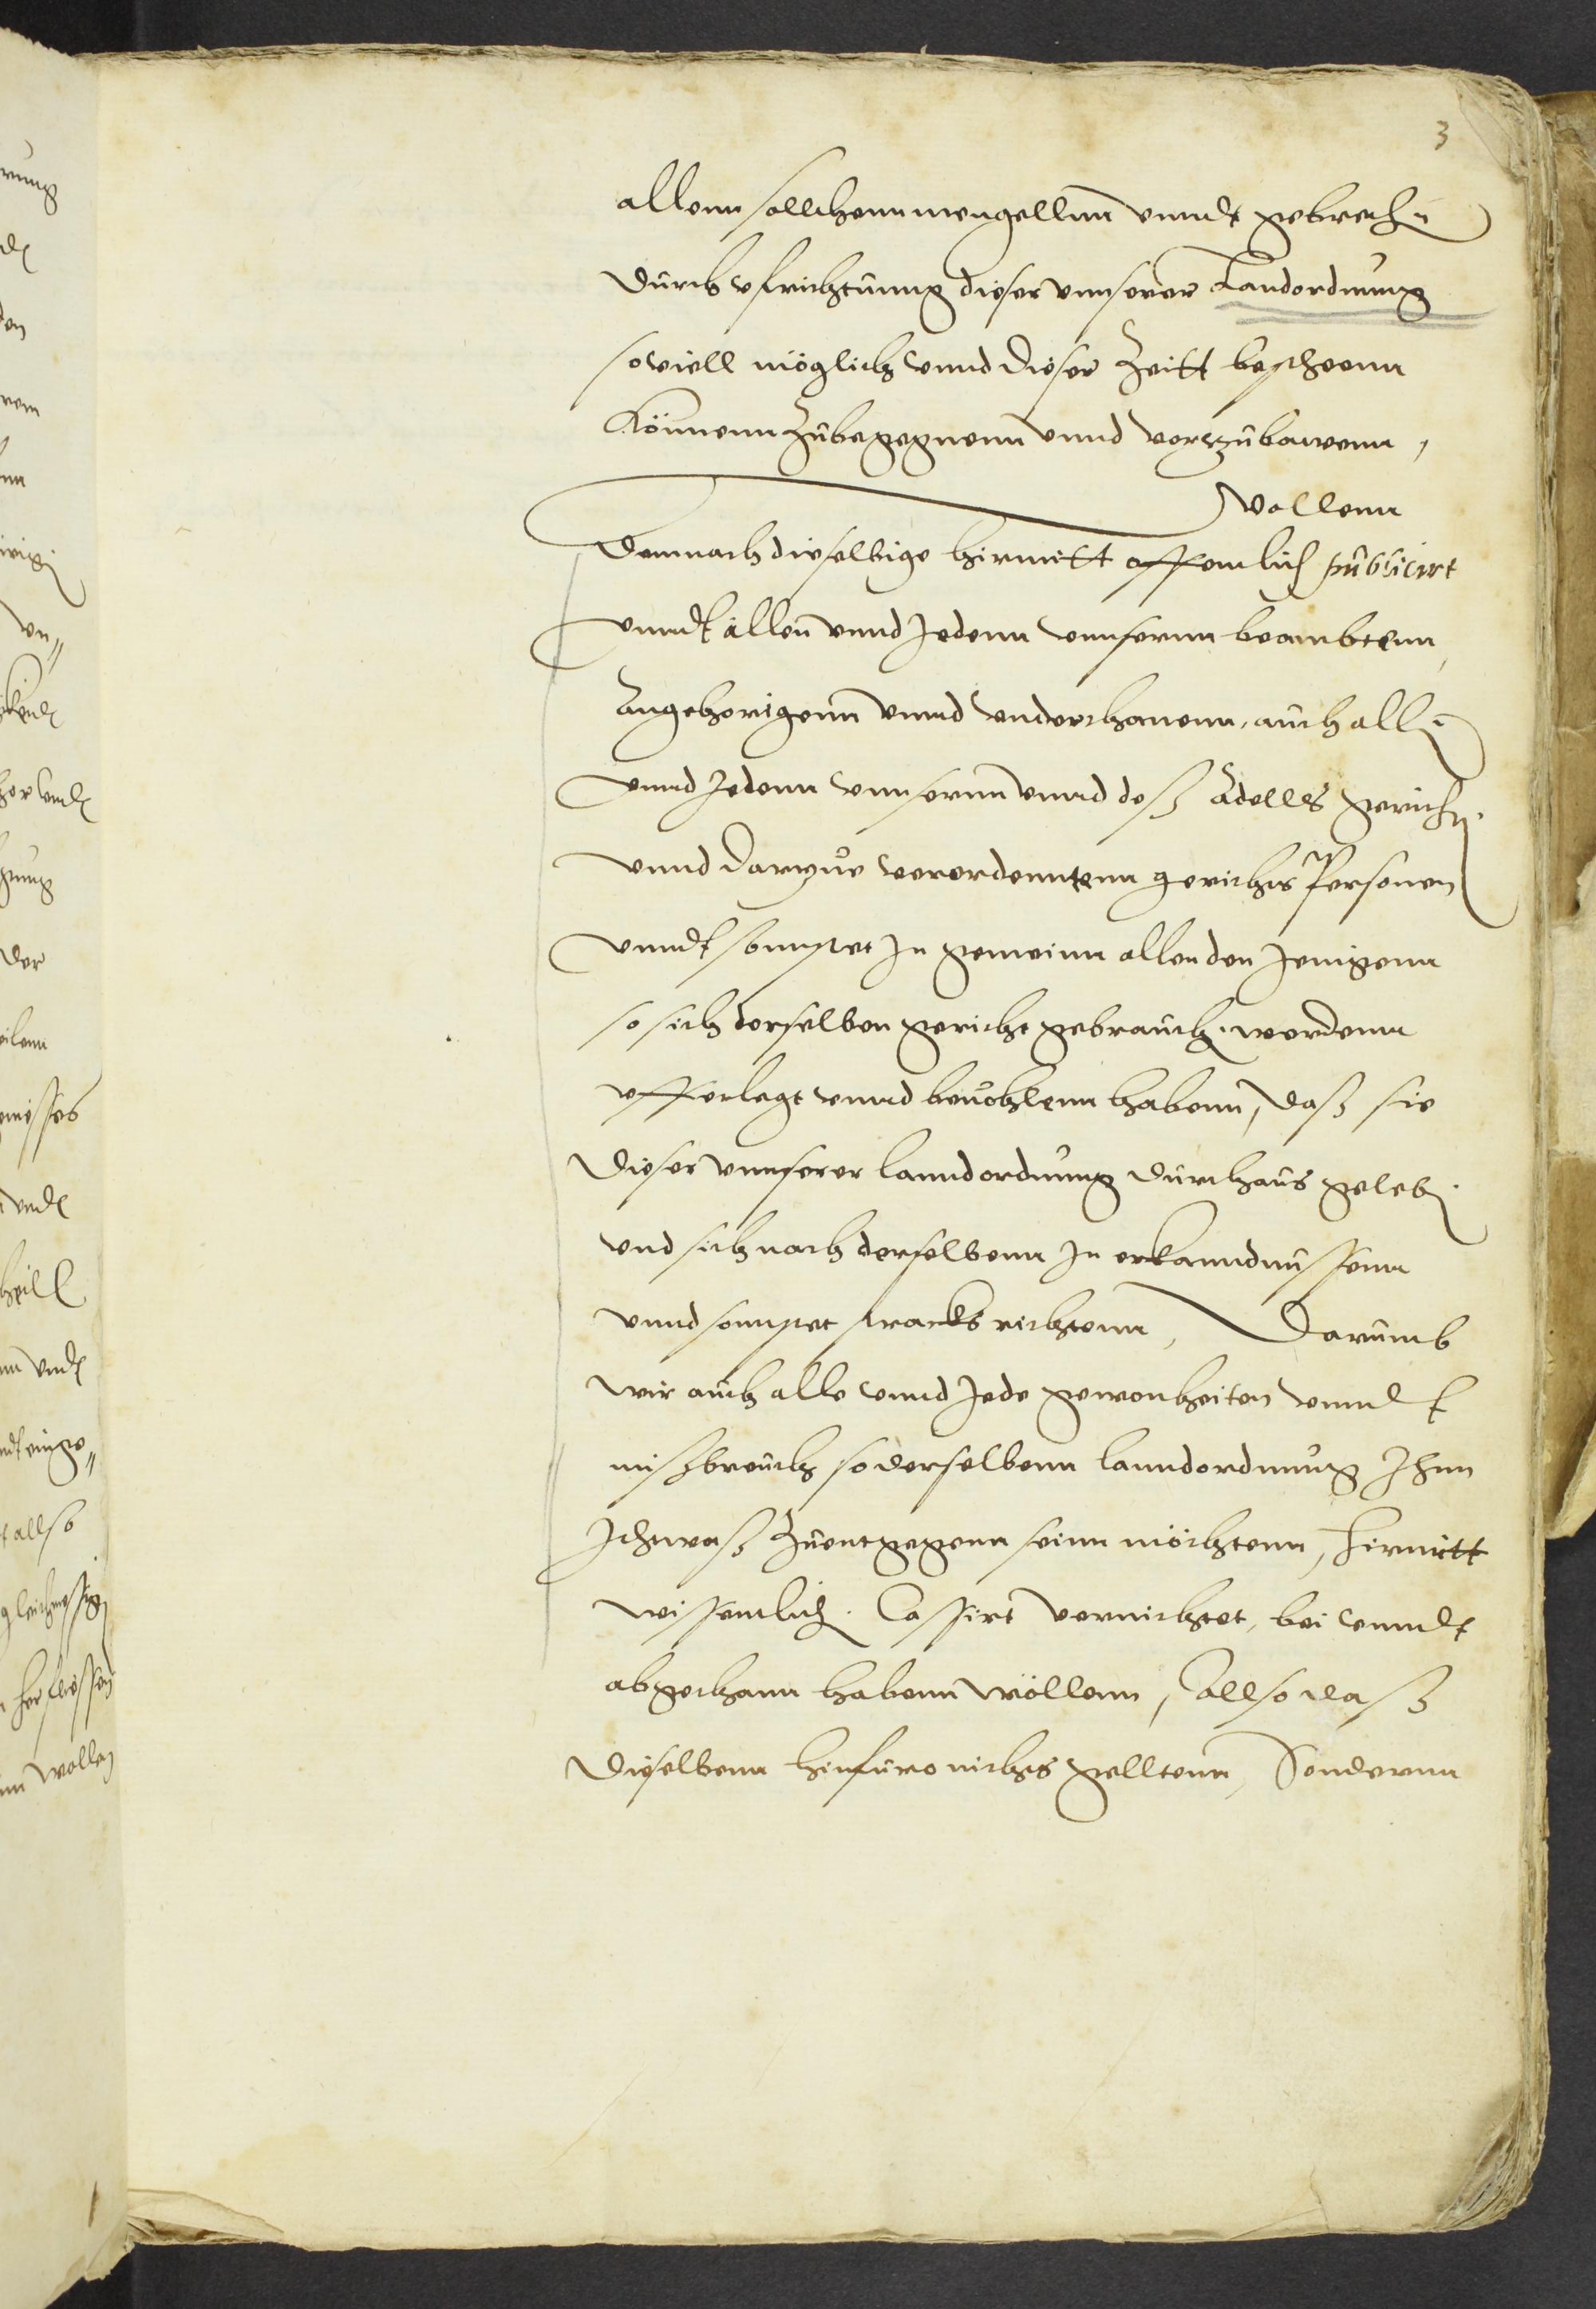 3
allenn sollchenn mengellnn vnndt gebrechen
durch vfrichtunng dieser vnnserer Landordnung
soviell möglich vnnd dieser Zeitt bescheenn
Könnenn Zubegegnenn vnnd vorzubawenn,
Wollenn
Demnach dieselbige hiemitt offentlich publicirt
vnndt allen vnnd Jedenn vnnsernn beambtenn,
Angehorigenn vnnd vnderthanenn, auch allen
vnnd Jedenn vnnsernn vnnd deß Adells gerichten
vnnd darzue verordenntenn gerichts Personen
vnndt sonnstet In gemeinn allen den Jenigenn
so sich derselben gericht gebrauchen werdenn
vfferlegt vnnd beuohlenn habenn, daß sie
dieser vnnserer lanndordnung durchaus geleben
vnd sich nach derselbenn In erkanndnussenn
vnnd sonnstet stracks richtenn, Darumb
wir auch alle vnnd Jede gewonheiten vnndt
mißbreuch so derselbenn lanndordnung Ihnn
Ichtwaß Zuentgegenn seinn möchtenn, hiemitt
wissentlich Cassirt vernichtet, bei vnndt
abgethann habenn wöllenn, Allso daß
dieselbenn hinfuro nichts gelltenn, Sondernn